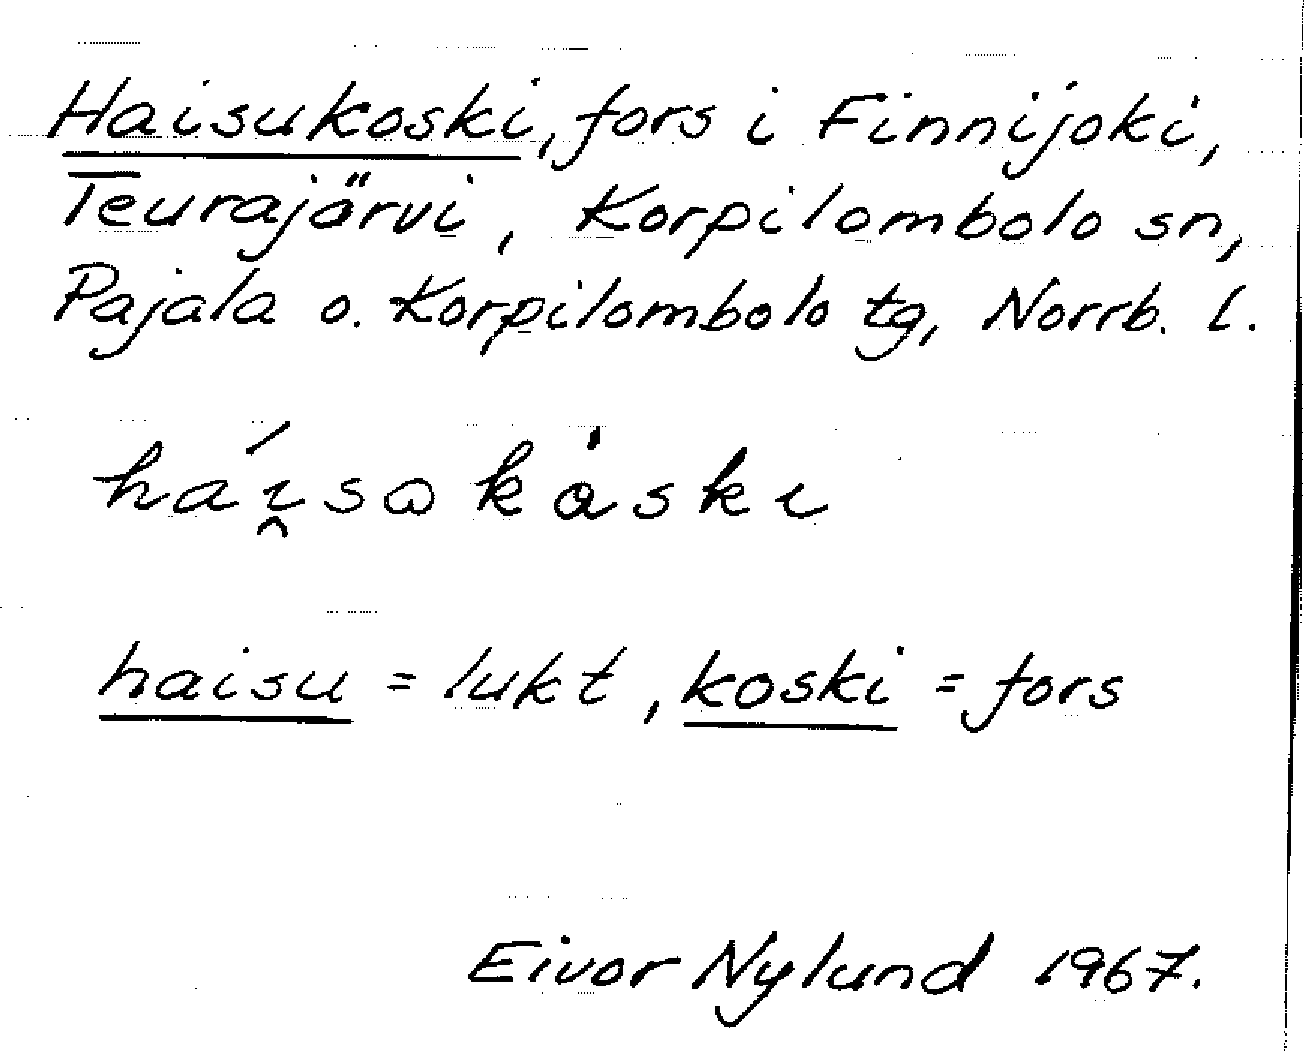 Haisukoski, fors i Finnijoki,
Teurajärvi, Korpilombolo sn,
Pajala o. Korpilombolo tg, Norrb. l.
háɪ̯sɷkȧskɩ
haisu = lukt, koski = fors
Eivor Nylund 1967.